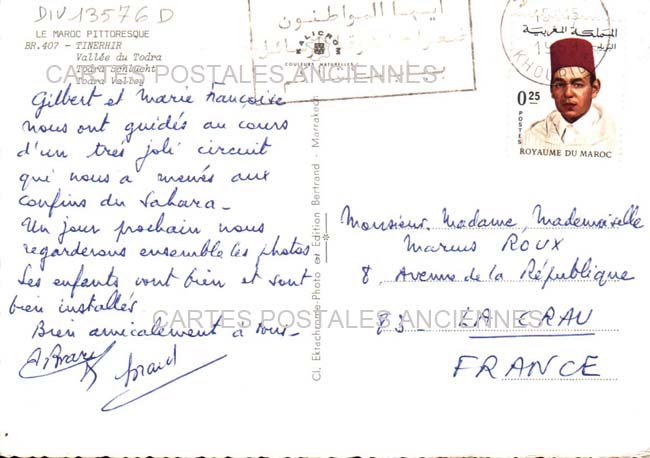 DIV 13576 D
LE MAROC PITTORESQUE
BR.407 - TINERHIR
Vallée du Todra
Todra Schlucht
Todra Valley
CARTES POSTALES ANCIENNES
Gilbert et Marie Françoise
nous ont guidés au cours
d'un trés joli circuit
qui nous a menés aux
confins du Sahara_
Un jour prochain nous
regarderons ensemble les photos
Les enfants vont bien et sont
bien installés
Bien amicalement à tous_
CARTES POSTALES ANCIENNES
KALICROM
COULEURS NATURELLES
Cl. Ektachrome-Photo et Edition Bertrand - Marrakech
أيها المواطنون
المملكة المغربية
البريد
0 25
POSTES
ROYAUME DU MAROC
15-15
KHOURIBGA
Monsieur. Madame, Mademoiselle
Marius ROUX
8, Avenue de la République
83_ LA CRAU
FRANCE